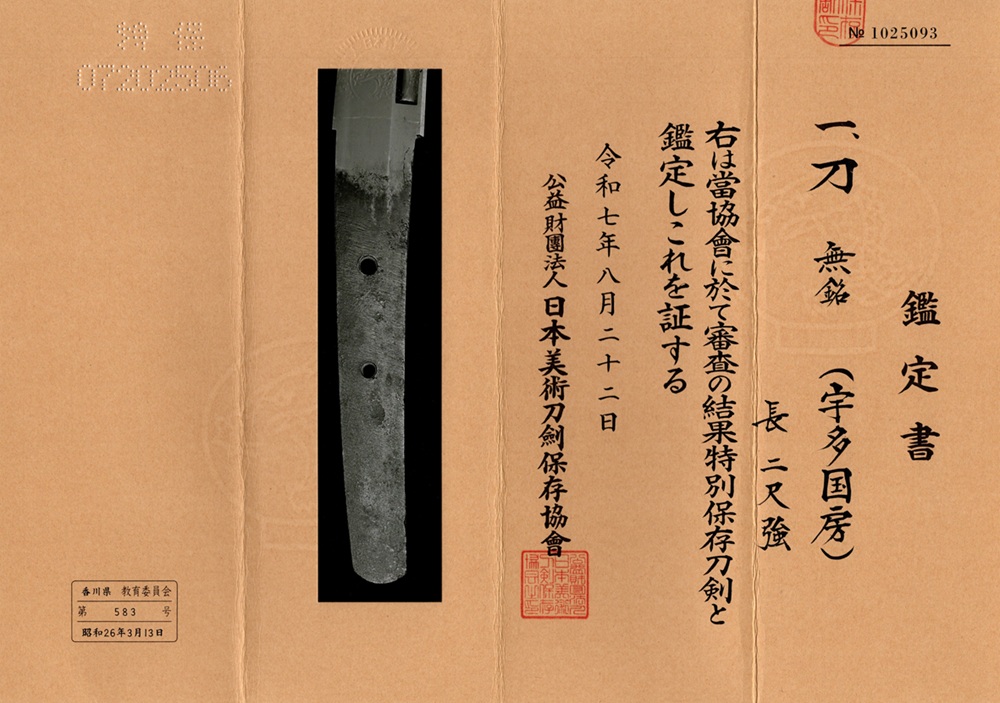 № 1025093
鑑定書
一、刀 無銘 (宇多国房)
長 二尺強
右は當協會に於て審査の結果特別保存刀剣と
鑑定しこれを証する
令和七年八月二十二日
公益財團法人 日本美術刀劍保存協會
特保
07202506
香川県 教育委員会
第 583 号
昭和26年3月13日